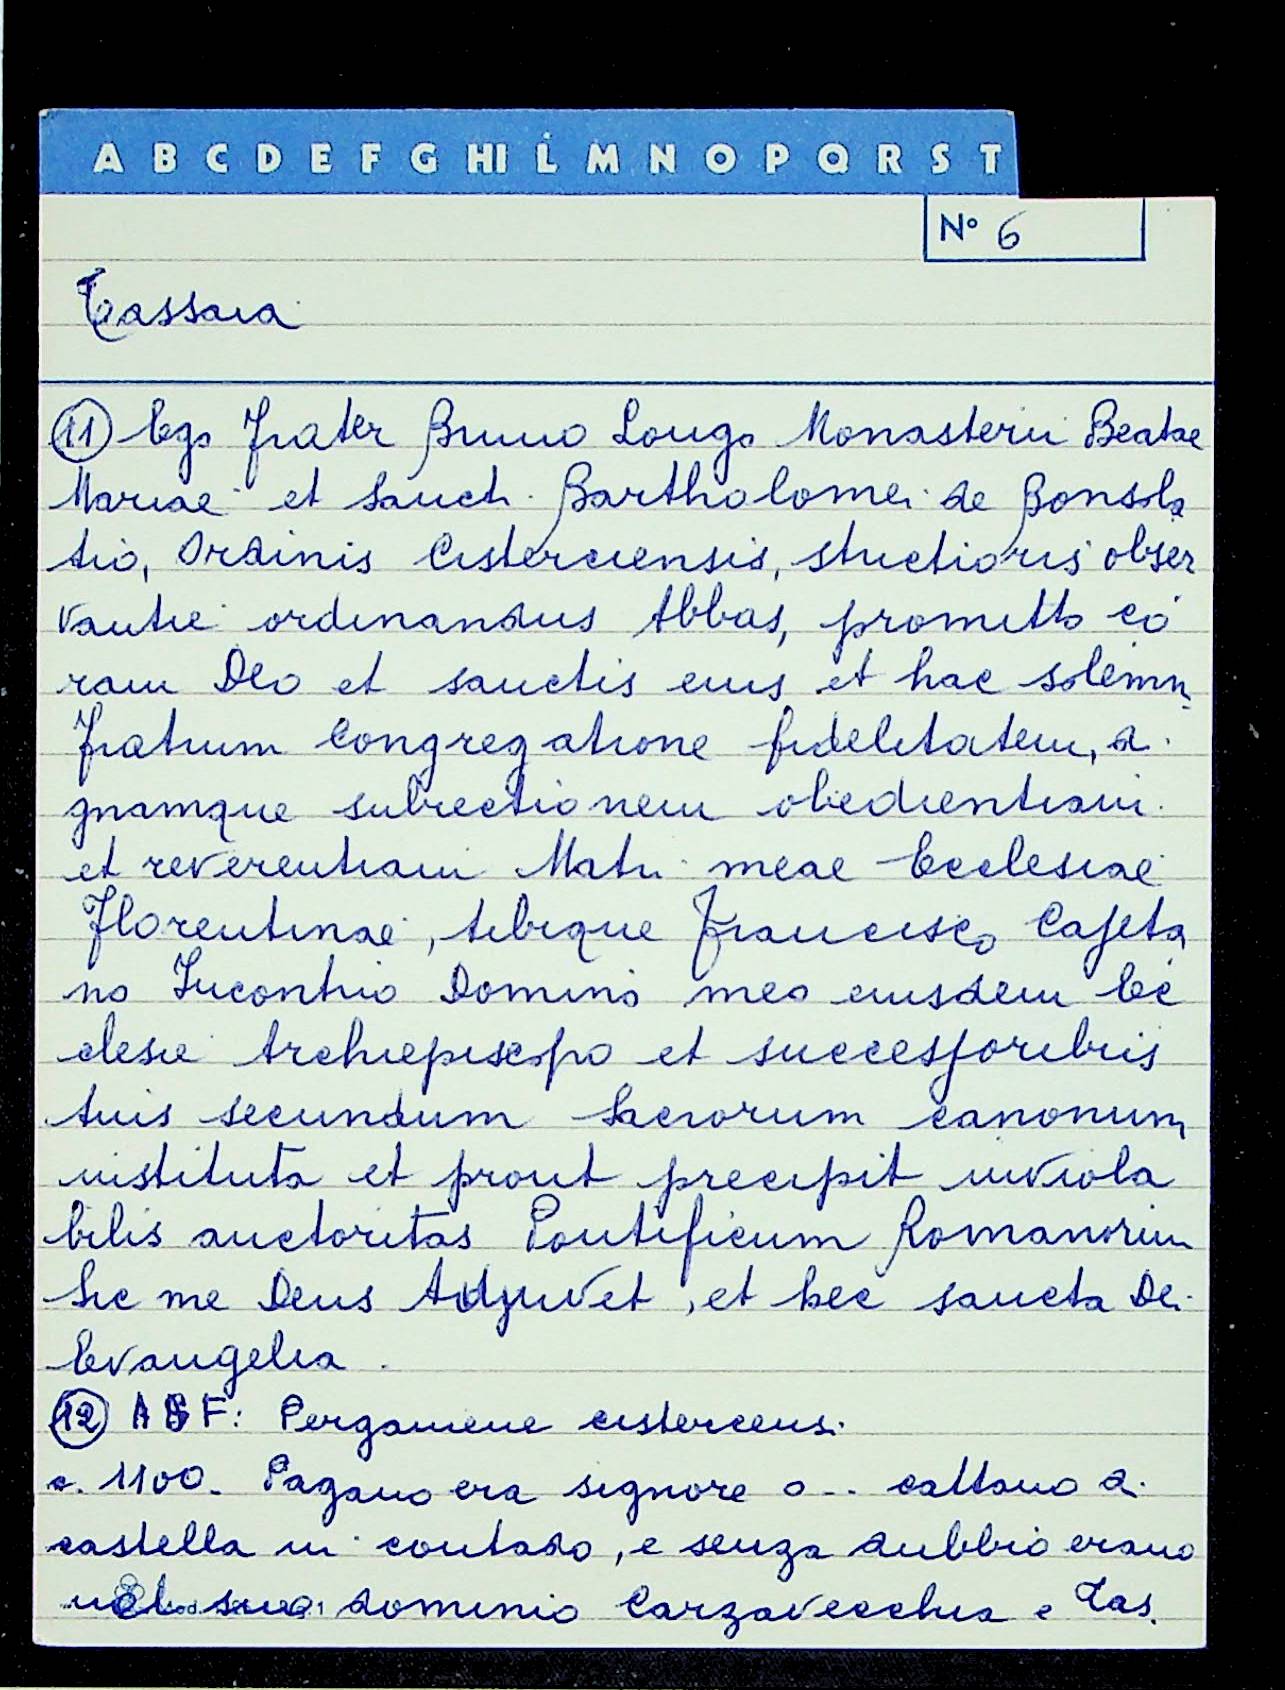 A B C D E F G HI L M N O P Q R S T
Nº 6
Tassaia
(11) Ego Frater Bruno Longo Monasterii Beatae
Mariae et Sancti Bartholomei de Bonsola
tio, Ordinis Cisterciensis, strictioris obser
vantie ordinandus Abbas, promitto co
ram Deo et sanctis eius et hac solemni
fratrum congregatione fidelitatem, di
gnamque subiectionem obedientiam
et reverentiam Matri meae Ecclesiae
Florentinae, tibique Francisco Cajeta
no Incontrio Domino meo eiusdem Ec
clesie Archiepiscopo et successoribus
tuis secundum Sacrorum canonum
instituta et prout precipit inviola
bilis auctoritas Pontificum Romanorum
Sic me Deus Adjuvet, et hec sancta Dei
Evangelia.
(12) ASF: Pergamene cistercensi
a. 1100. Pagano era signore o.. cattano di
castella in contado, e senza dubbio erano
nel suo dominio Carzavecchia e Tas.